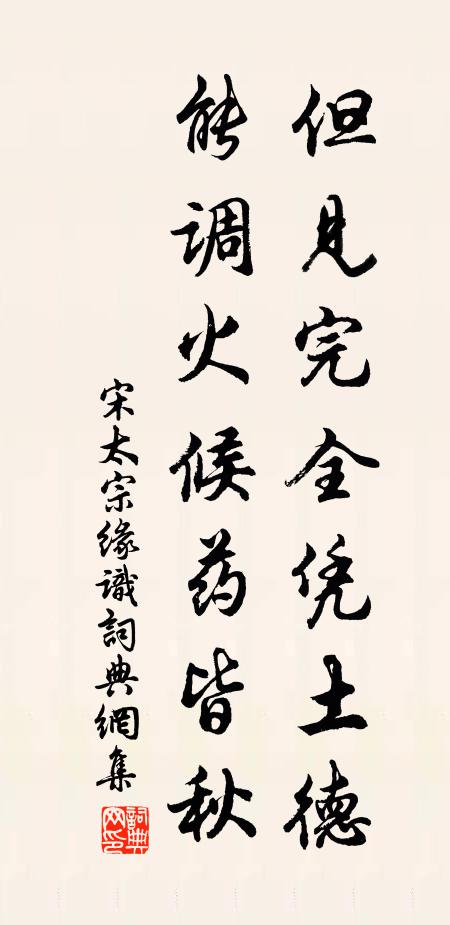 但见完全凭土德
能调火候药皆秋
宋太宗缘識詞典網集
詞典网印